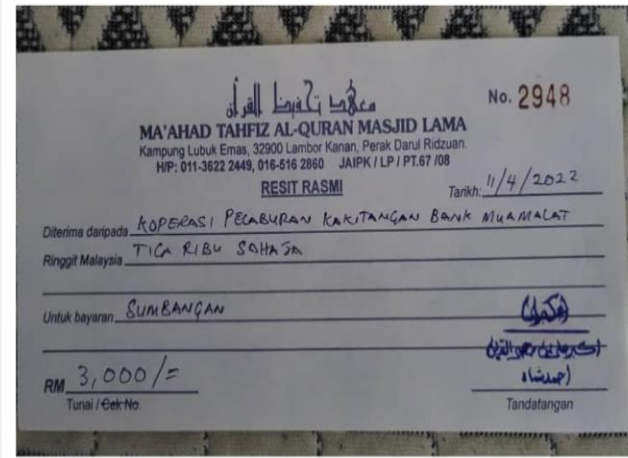 معهد تحفيظ القرآن
No. 2948
MA'AHAD TAHFIZ AL-QURAN MASJID LAMA
Kampung Lubuk Emas, 32900 Lambor Kanan, Perak Darul Ridzuan.
H/P: 011-3622 2449, 016-516 2860 JAIPK / LP / PT.67 /08
RESIT RASMI
Tarikh: 11/4/2022
Diterima daripada KOPERASI PELABURAN KAKITANGAN BANK MUAMALAT
Ringgit Malaysia TIGA RIBU SAHAJA
Untuk bayaran SUMBANGAN
RM 3,000/=
Tunai / Cek No.
Tandatangan